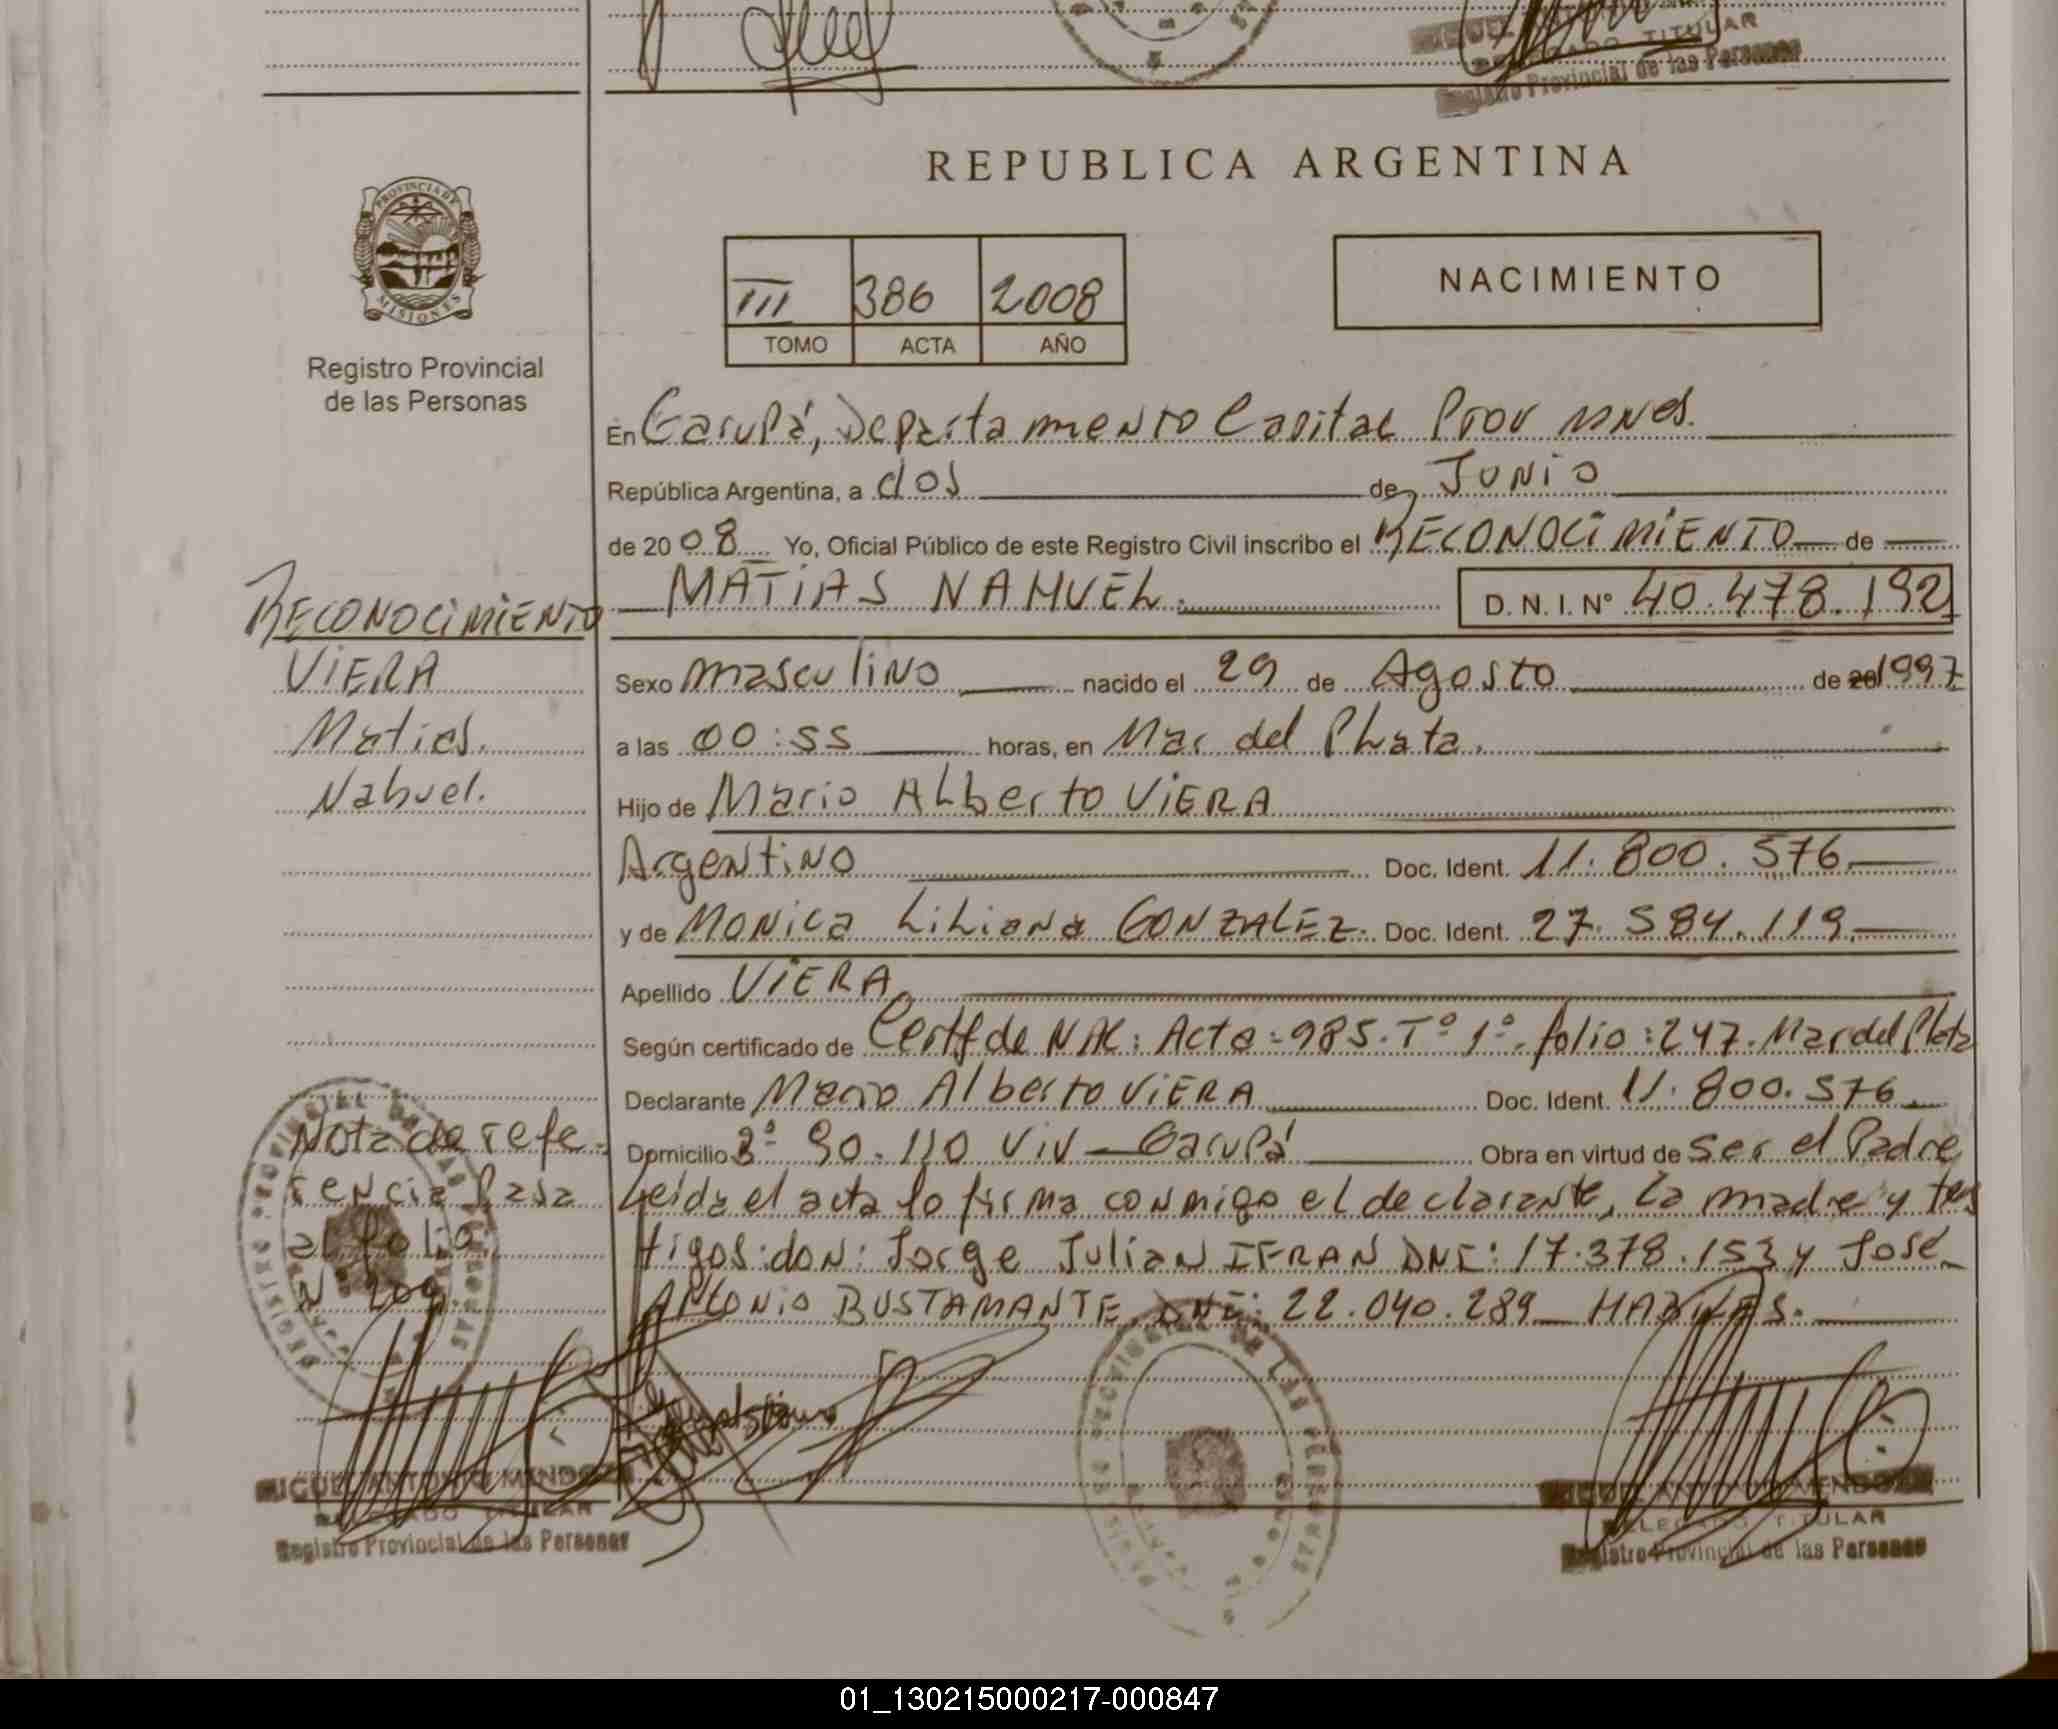 TITULAR
Registro Provincial de las Personas
REPUBLICA ARGENTINA
PROVINCIA DE
MISIONES
Registro Provincial
de las Personas
III 386 2008
TOMO ACTA AÑO
NACIMIENTO
En Garupá, Departamento Capital Prov Mnes.
República Argentina, a dos de Junio
de 2008 Yo, Oficial Público de este Registro Civil inscribo el RECONOCIMIENTO de
MATIAS NAHUEL. D. N. I. Nº 40.478.192
RECONOCIMIENTO
VIERA
Matias.
Nahuel.
Sexo masculino nacido el 29 de Agosto de 20 1997
a las 00:55 horas, en Mar del Plata.
Hijo de Mario Alberto VIERA
Argentino Doc. Ident. 11.800.576.
y de MONICA Liliana GONZALEZ. Doc. Ident. 27.584.119.
Apellido VIERA
Según certificado de Certf de NAC: Acta: 985. Tº 1º. folio: 247. Mar del Plata
Declarante Mario Alberto VIERA Doc. Ident. 11.800.576
Domicilio 90.110 Viv - Garupá Obra en virtud de ser el Padre
Leida el acta lo firma conmigo el declarante, la madre y tes
tigos: don: Jorge Julian IFRAN DNI: 17.378.153 y José
Antonio BUSTAMANTE, DNI: 22.040.289 HABILES.
Nota de refe-
rencia Pasa
al folio
Nº 209
MIGUEL ANTONIO MENDOZA
DELEGADO TITULAR
Registro Provincial de las Personas
MIGUEL ANTONIO MENDOZA
DELEGADO TITULAR
Registro Provincial de las Personas
01_130215000217-000847